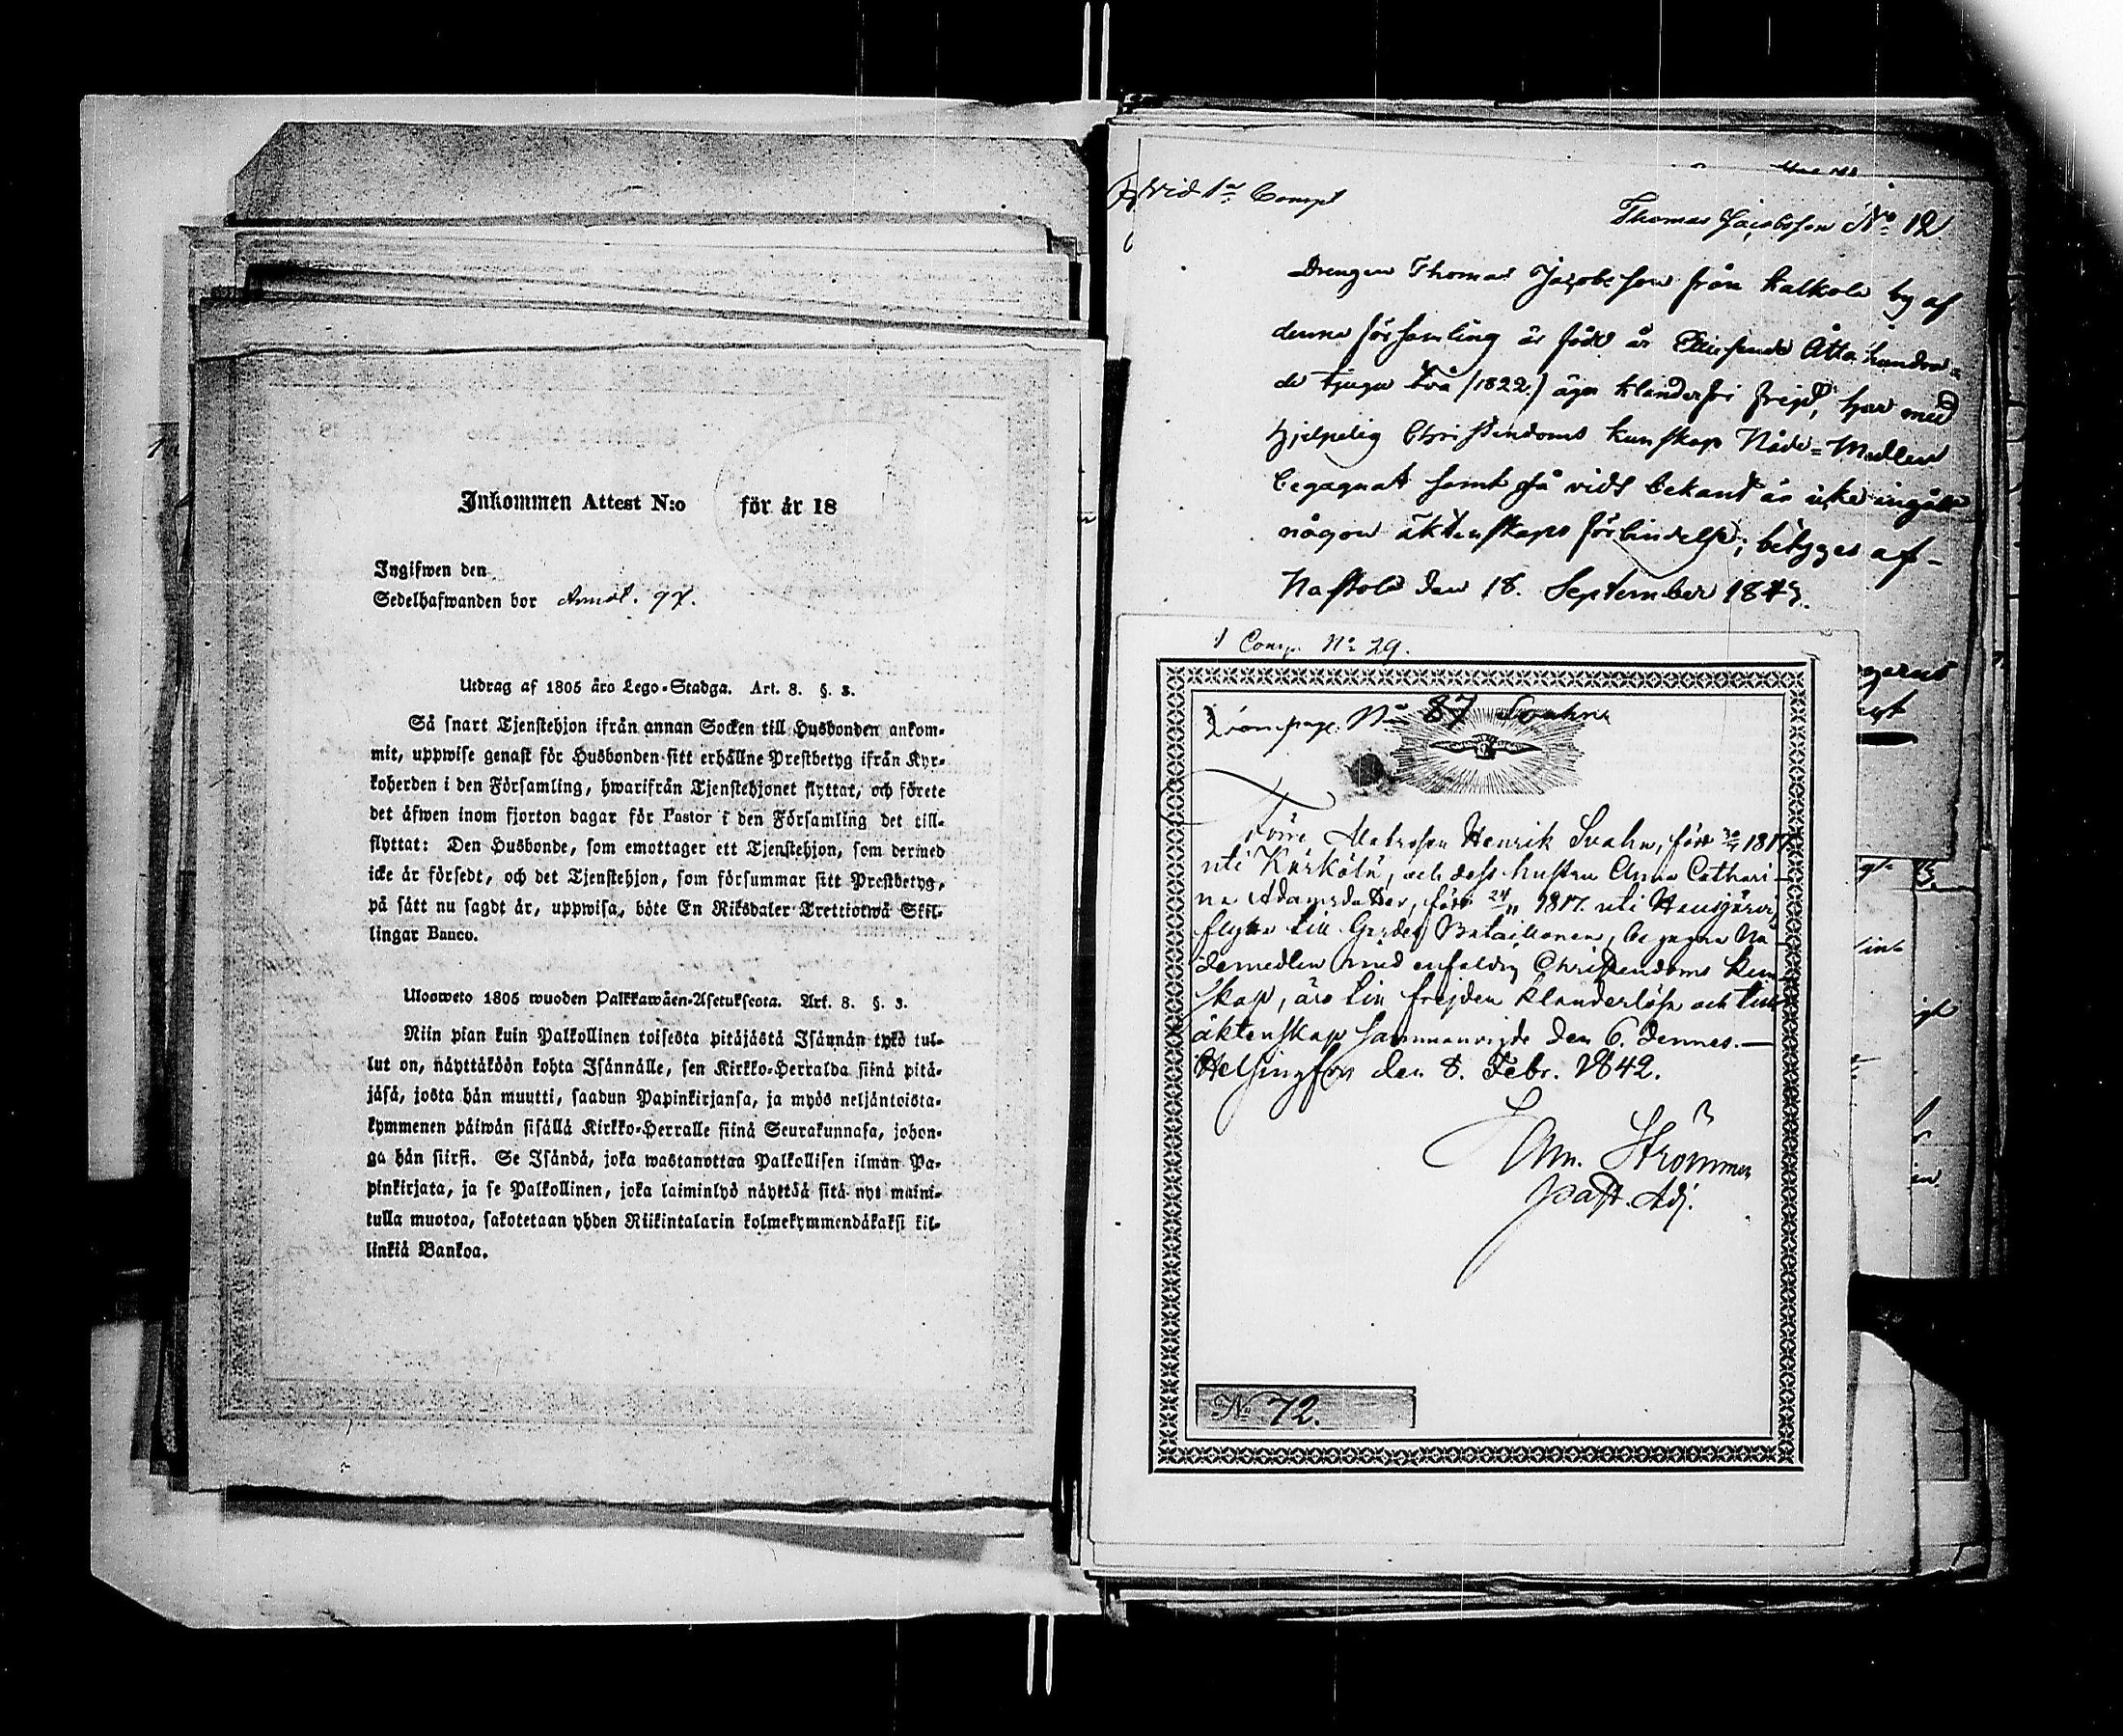 Inkommen Attest N:o för år 18
Ingifwen den
Sedelhafwanden bor Annot. 97.
Utdrag af 1805 års Lego-Stadga. Art. 8. §. 3.
Så snart Tjenstehjon ifrån annan Socken till Husbonden ankom-
mit, uppwise genast för Husbonden sitt erhållne Prestbetyg ifrån Kyr-
koherden i den Församling, hwarifrån Tjenstehjonet flyttat, och förete
det äfwen inom fjorton dagar för Pastor i den Församling det till-
flyttat: Den Husbonde, som emottager ett Tjenstehjon, som dermed
icke är försedt, och det Tjenstehjon, som försummar sitt Prestbetyg,
på sätt nu sagdt är, uppwisa, böte En Riksdaler Trettiotwå Skil-
lingar Banco.
Ulosweto 1805 wuoden Palkkawäen-Asetuksesta. Art. 8. §. 3.
Niin pian kuin Palkollinen toisesta pitäjästä Isännän tykö tul-
lut on, näyttäköön kohta Isännälle, sen Kirkko-Herralda siinä pitä-
jäsä, josta hän muutti, saadun Papinkirjansa, ja myös neljäntoista-
kymmenen päiwän sisällä Kirkko-Herralle siinä Seurakunnasa, johon-
ga hän siirsi. Se Isändä, joka wastanottaa Palkollisen ilman Pa-
pinkirjata, ja se Palkollinen, joka laiminlyö näyttää sitä nyt maini-
tulla muotoa, sakotetaan yhden Riikintalarin kolmekymmendäkaksi kil-
linkiä Bankoa.
vid 1a Comp
Thomas Jacobsson No 12
Drengen Thomas Jacobsson från Kalkola by af
denna församling är född år Ettusende Åtta hundra-
de tjugu två (1822.) äger klanderfri frejd, har med
hjelpelig Christendoms kunskap Nåde-Medlen
begagnat samt så vidt bekant är icke ingått
någon äktenskaps förbindelse; betygas af-
Nastola den 18. September 1843.
1 Comp. No 29.
No 87 Svahn
Förre Matrosen Henrik Svahn, född 1817
uti Kärkölä, och dess hustru Anna Cathari-
na Adamsdotter, född 24/11 1817. uti Hausjärvi,
flytta till Gardes Bataillonen, begagna Nå-
demedlen med enfaldig Christendoms kun-
skap, äro till frejden klanderlösa och till
äktenskap sammanvigde den 6. dennes.—
Helsingfors den 8. Febr. 1842.
Strömmer
Past. Adj.
No 72.